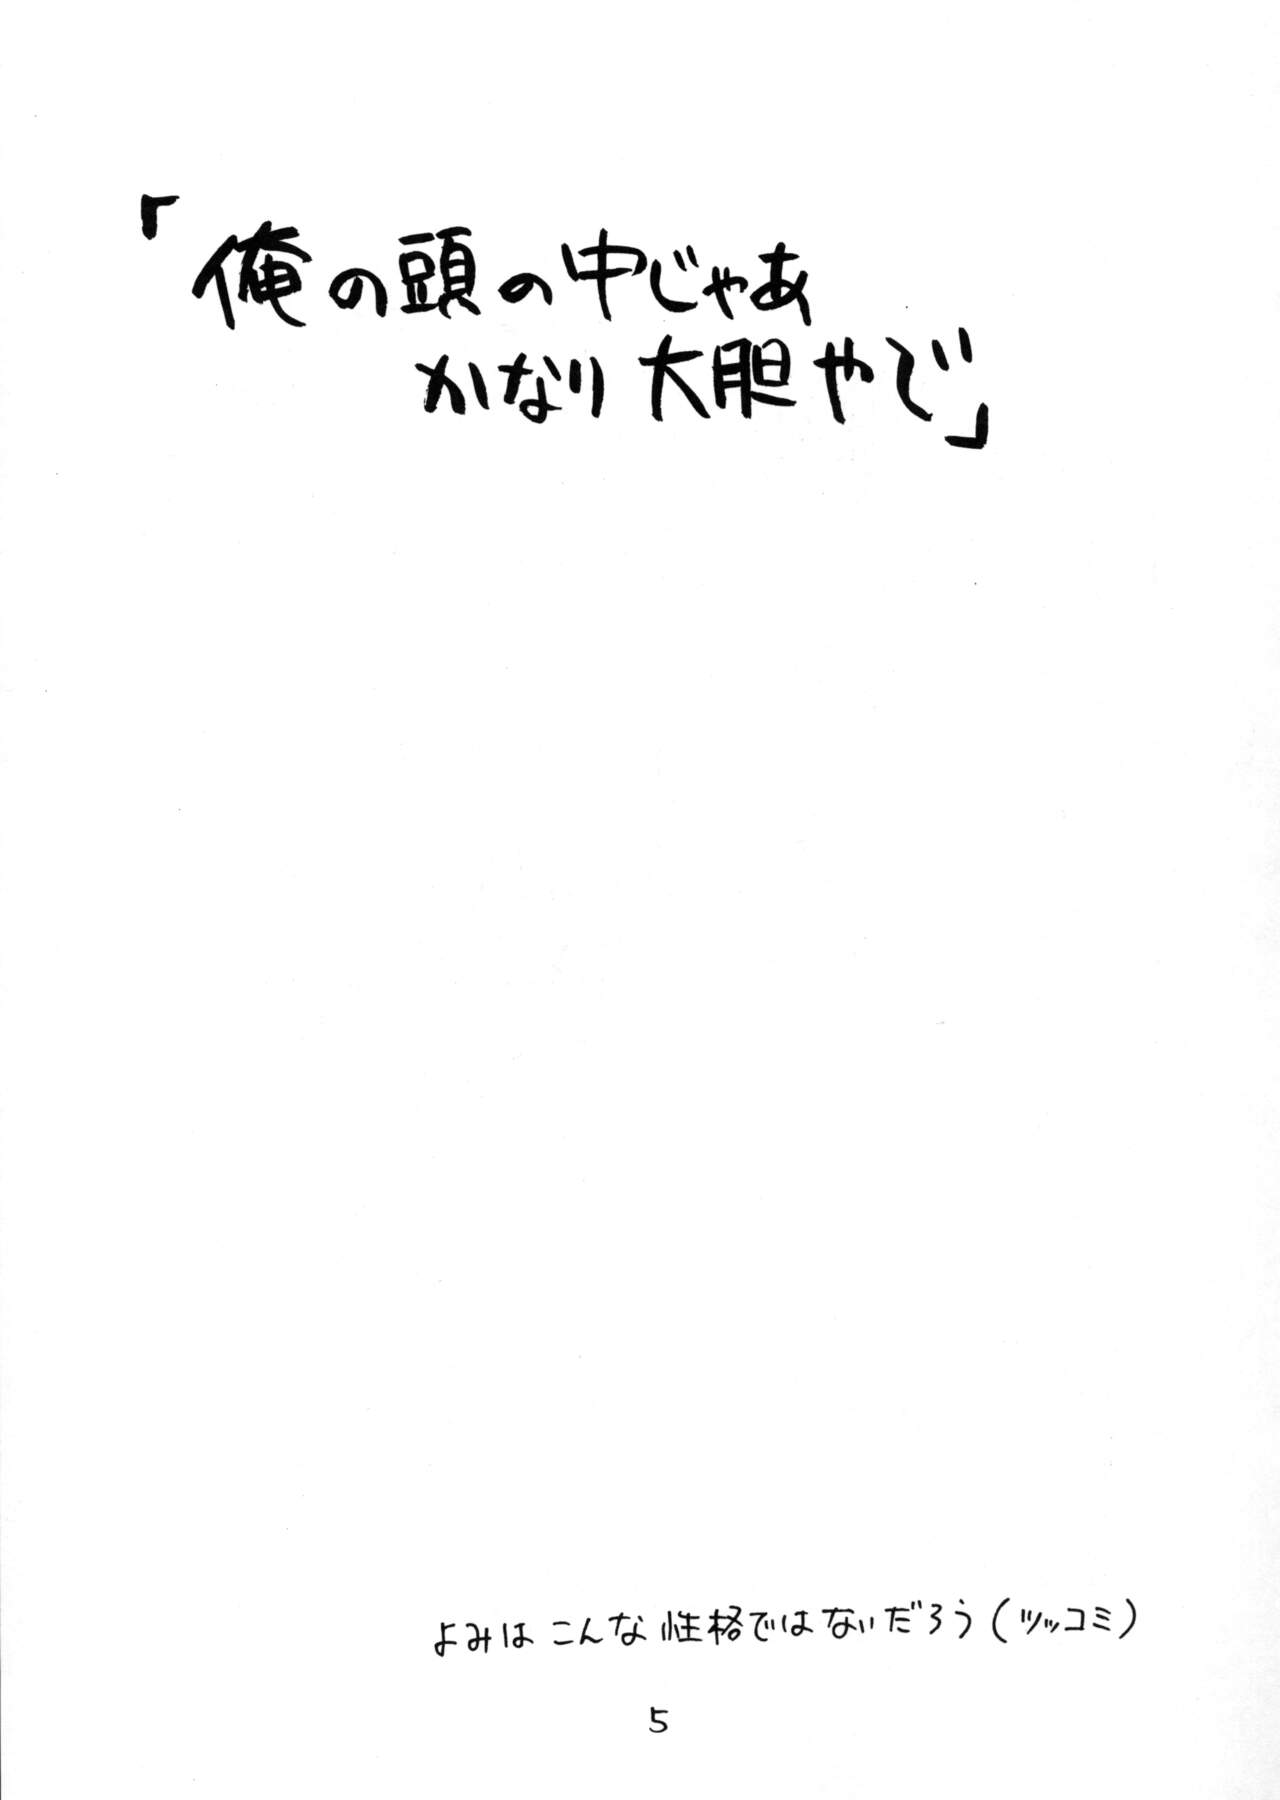 「俺の頭の中じゃあ
かなり大胆やで」
よみは こんな性格ではないだろう(ツッコミ)
5